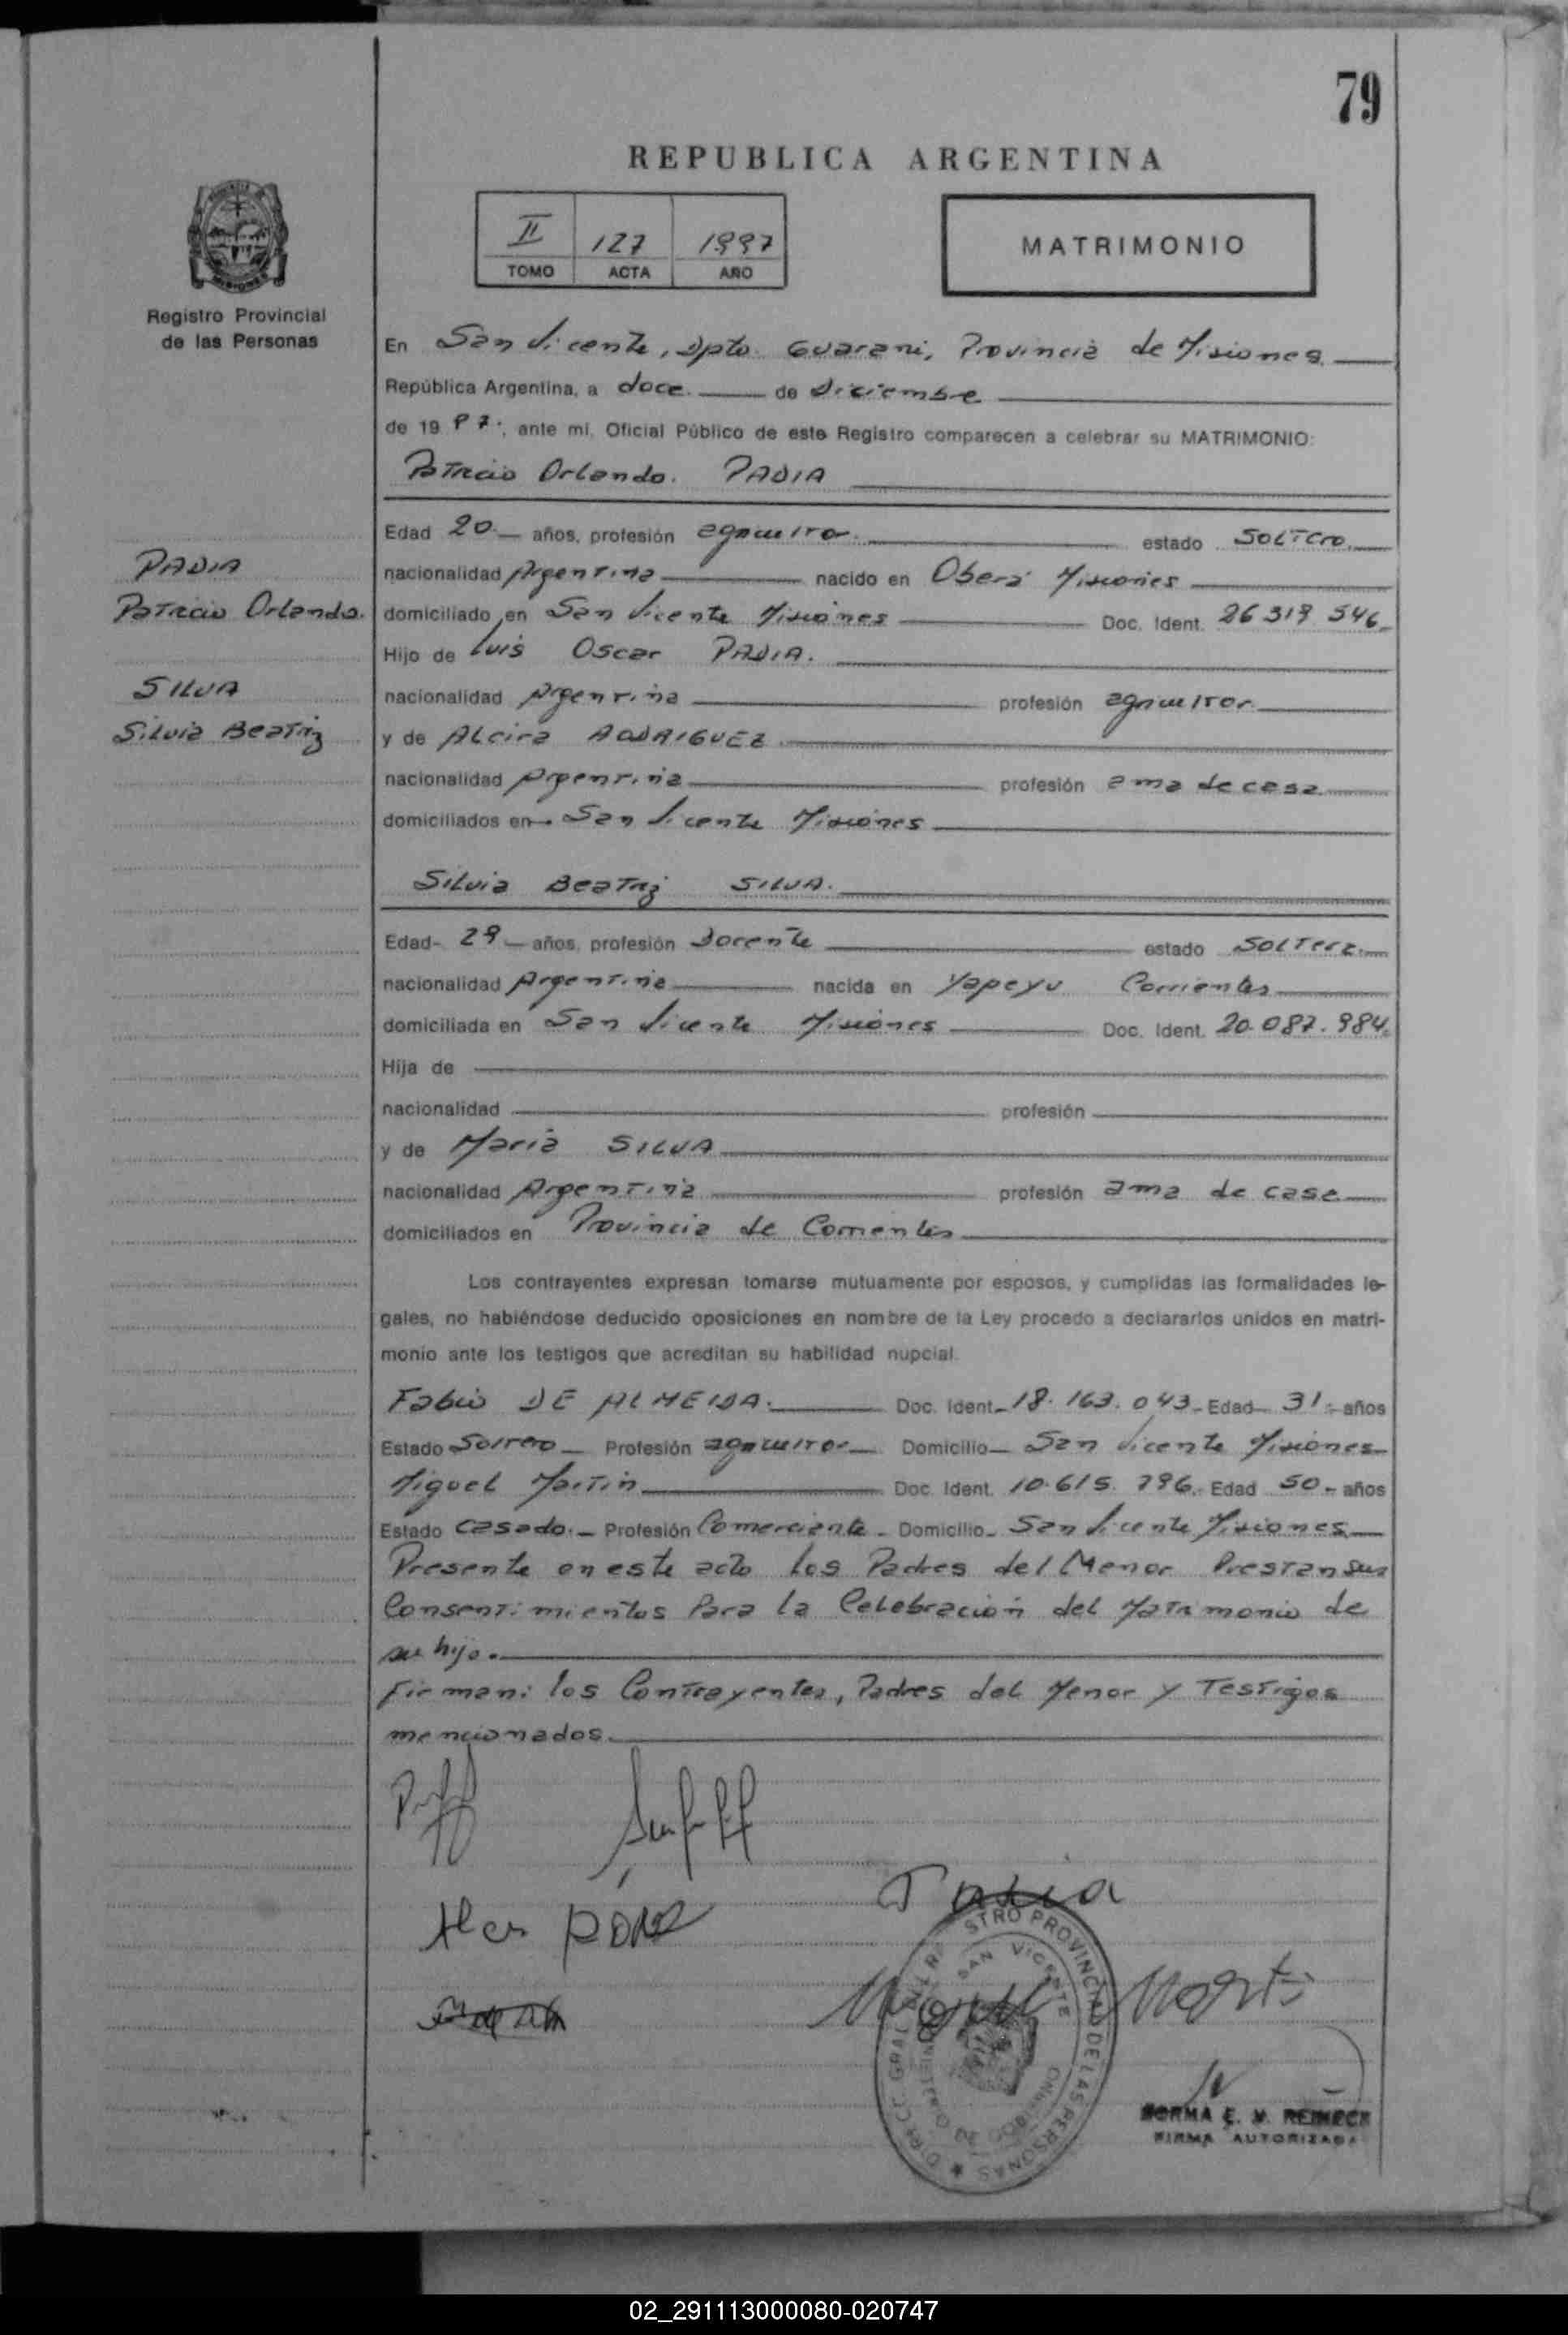 79
REPUBLICA ARGENTINA
II 127 1997
TOMO ACTA AÑO
MATRIMONIO
Registro Provincial
de las Personas
En San Vicente, Dpto. Guarani, Provincia de Misiones
República Argentina, a doce. de Diciembre
de 19 97., ante mi, Oficial Público de este Registro comparecen a celebrar su MATRIMONIO:
Patricio Orlando. PADIA
Edad 20.- años, profesión agricultor. estado Soltero
PADIA
nacionalidad Argentina nacido en Oberá Misiones
Patricio Orlando.
domiciliado en San Vicente Misiones Doc. Ident.
Hijo de Luis Oscar PADIA.
SILVA
nacionalidad Argentina profesión agricultor
Silvia Beatriz
y de Alcira RODRIGUEZ
nacionalidad Argentina profesión ama de casa
domiciliados en San Vicente Misiones
Silvia Beatriz SILVA.
Edad años, profesión Docente estado Soltera
nacionalidad Argentina nacida en Yapeyu Corrientes
domiciliada en San Vicente Misiones Doc. Ident. 20.087.984
Hija de
nacionalidad profesión
y de Maria SILVA
nacionalidad Argentina profesión ama de casa
domiciliados en Provincia de Corrientes
Los contrayentes expresan tomarse mutuamente por esposos, y cumplidas las formalidades le-
gales, no habiéndose deducido oposiciones en nombre de la Ley procedo a declararlos unidos en matri-
monio ante los testigos que acreditan su habilidad nupcial.
Fabio DE ALMEIDA. Doc. Ident. 18.163.043 Edad 31 años
Estado Soltero Profesión agricultor Domicilio San Vicente Misiones
Miguel Martin Doc. Ident. 10.615.796. Edad 50 años
Estado Casado. Profesión Comerciante Domicilio San Vicente Misiones
Presente en este acto los Padres del Menor Prestan sus
Consentimientos Para la Celebración del Matrimonio de
su hijo.
Firman: los Contrayentes, Padres del Menor y Testigos
mencionados.
NORMA E. V. REINECK
FIRMA AUTORIZADA
02_291113000080-020747